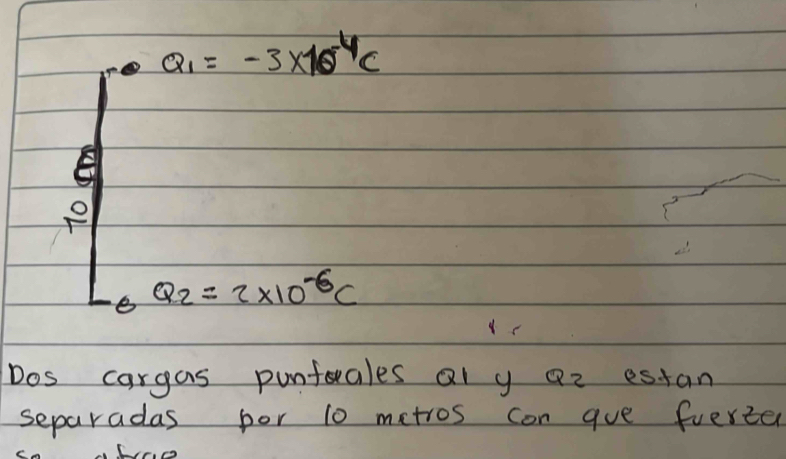 Q1 = -3x10-4C
10 m
Q2 = 2x10-6C
Dos cargas puntuales Q1 y Q2 estan
separadas por 10 metros con que fuerza
se atrae